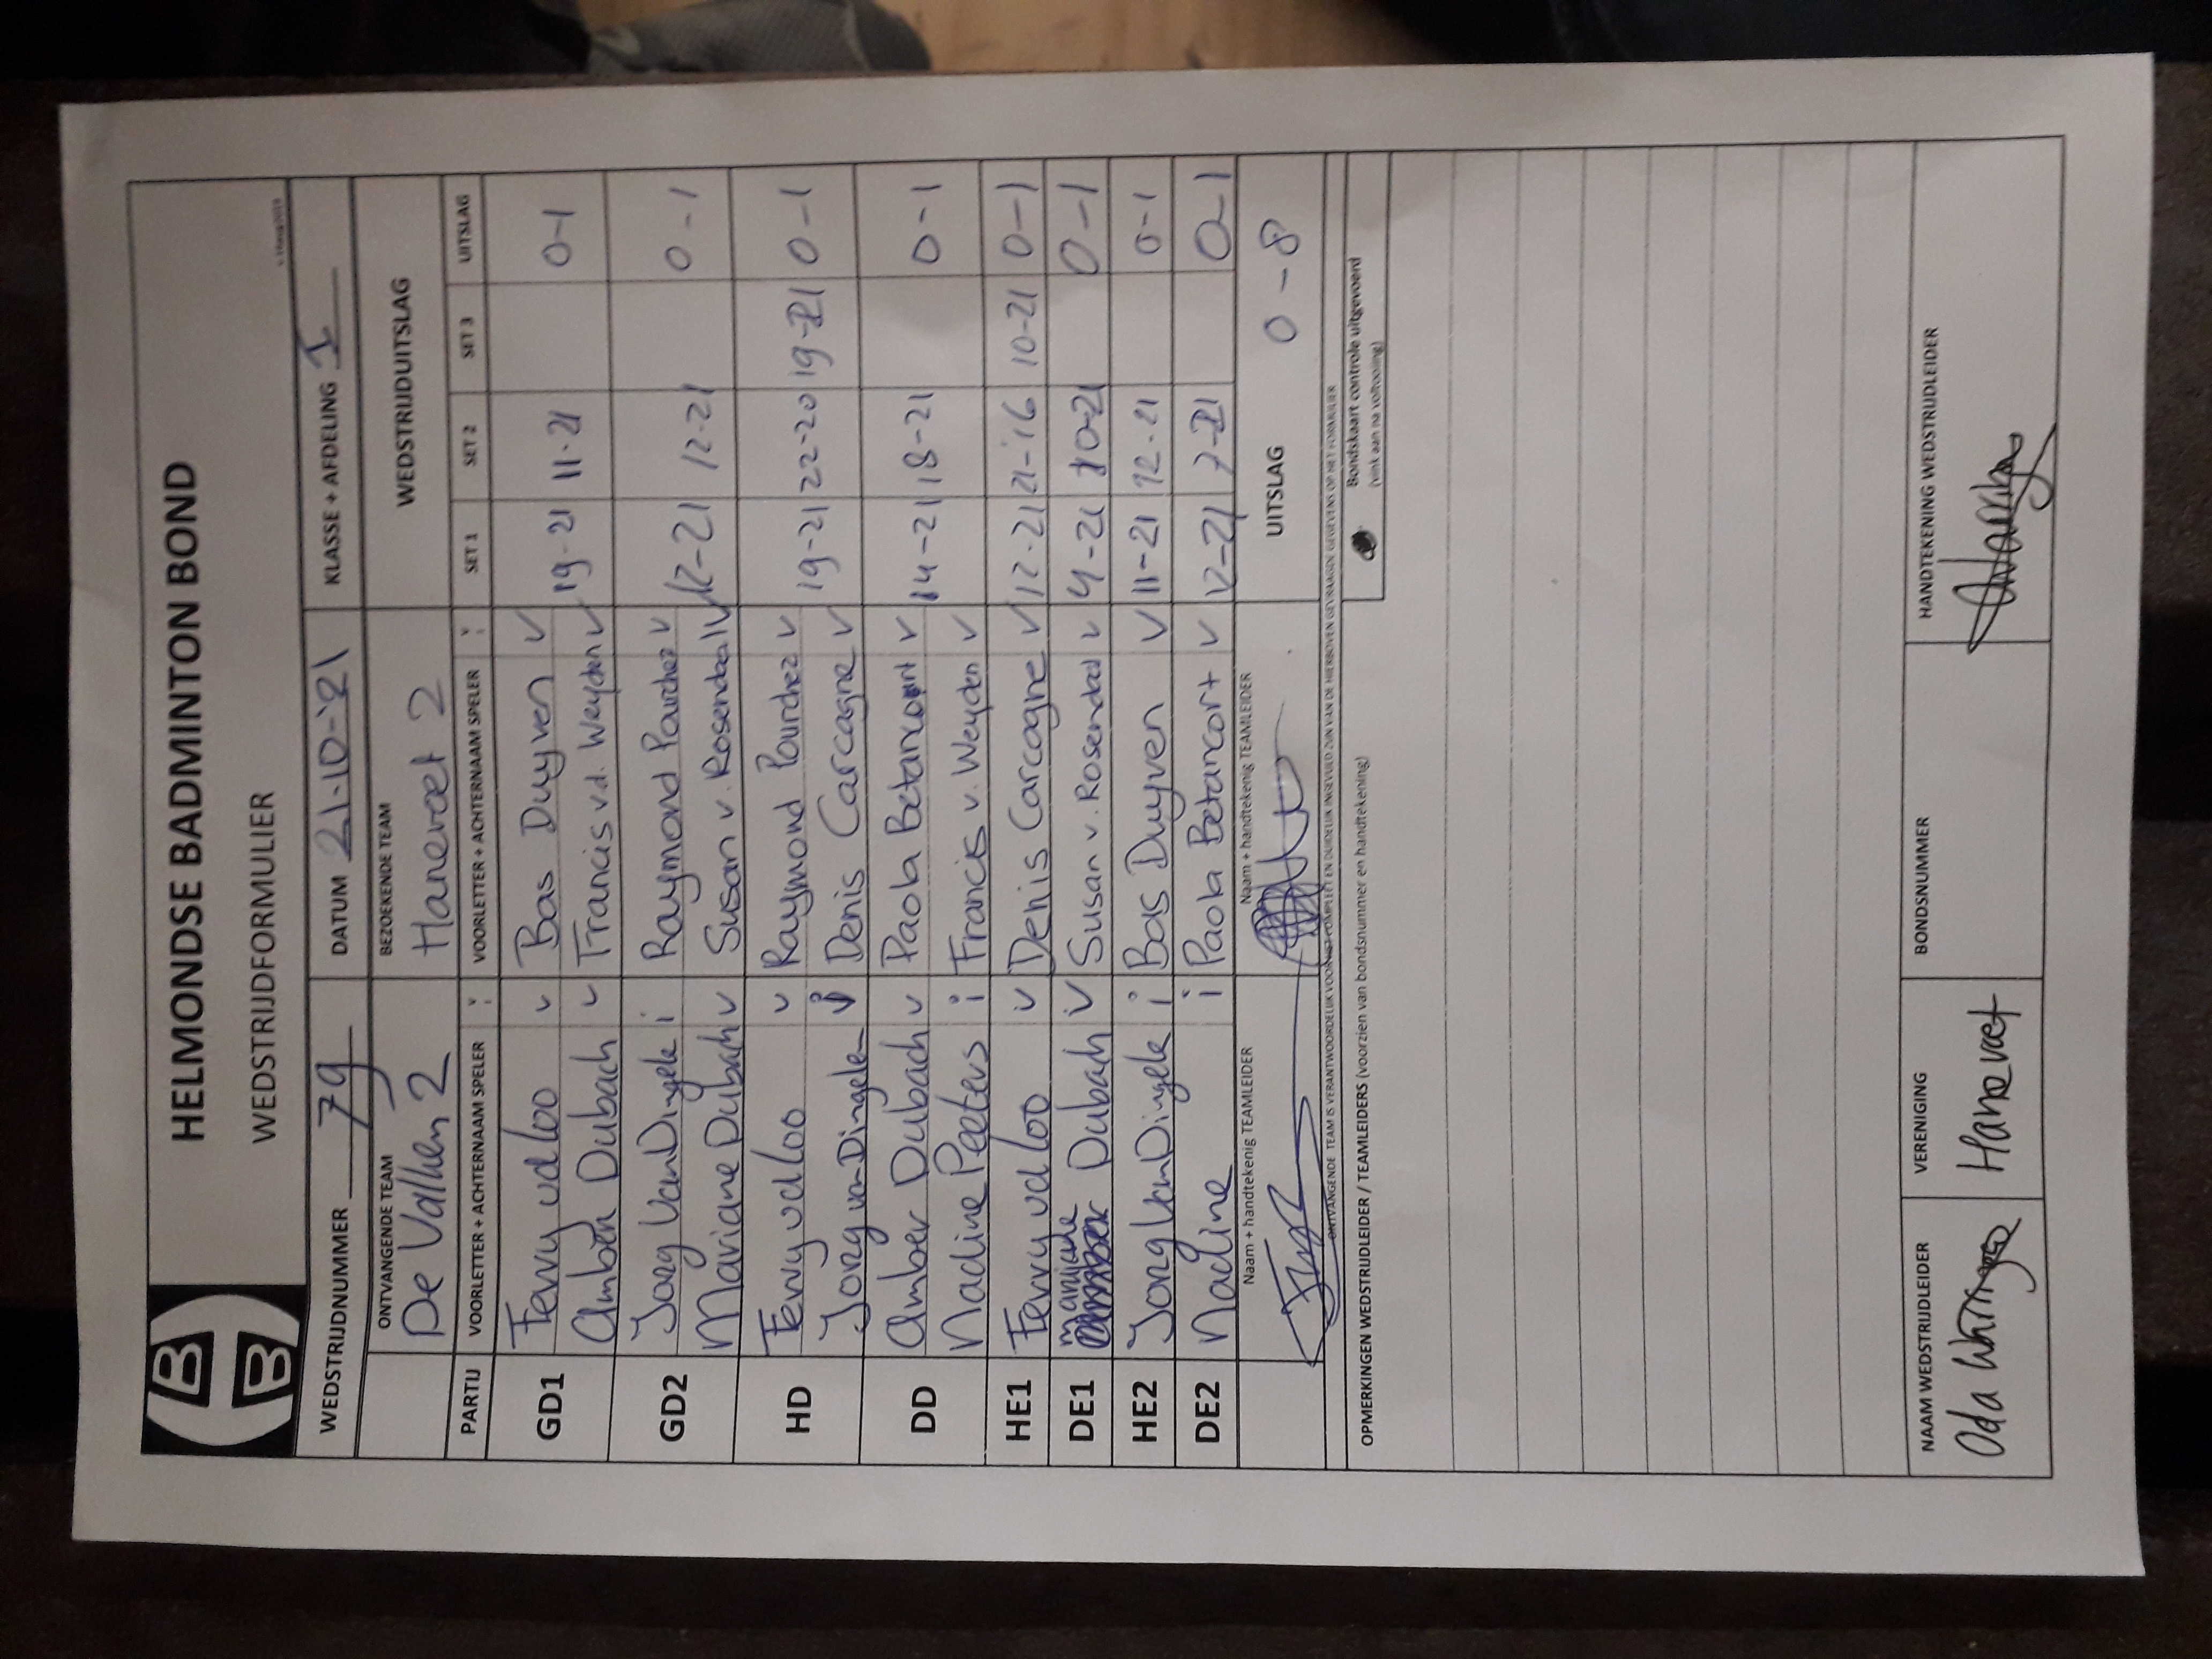 HB
B
HELMONDSE BADMINTON BOND
WEDSTRIJDFORMULIER
WEDSTRIJDNUMMER 79 DATUM 21-10-'21 KLASSE + AFDELING 1
ONTVANGENDE TEAM BEZOEKENDE TEAM WEDSTRIJDUITSLAG
De Valken 2 Hanevoet 2
PARTIJ VOORLETTER + ACHTERNAAM SPELER VOORLETTER + ACHTERNAAM SPELER SET 1 SET 2 SET 3 UITSLAG
GD1 Ferry vd Loo v Bas Duyven v 19-21 11-21 0-1
Amber Dubach v Francis v.d. Weyden v
GD2 Jorg Van Dingele i Raymond Pourchez v 12-21 12-21 0-1
Mariane Dubach v Susan v. Rosendaal v
HD Ferry vd Loo v Raymond Pourchez v 19-21 22-20 19-21 0-1
Jorg van Dingele Denis Carcagne v
DD Amber Dubach v Paola Betancourt v 14-21 18-21 0-1
Nadine Peeters i Francis v. Weyden v
HE1 Ferry vd Loo v Denis Carcagne v 12-21 21-16 10-21 0-1
DE1 Dubach v Susan v. Rosendaal v 4-21 10-21 0-1
HE2 Jorg Van Dingele i Bas Duyven v 11-21 12-21 0-1
DE2 Nadine i Paola Betancort v 12-21 7-21 0-1
Naam + handtekenig TEAMLEIDER Naam + handtekenig TEAMLEIDER UITSLAG 0-8
ONTVANGENDE TEAM IS VERANTWOORDELIJK VOOR HET COMPLEET EN DUIDELIJK INGEVULD ZIJN VAN DE HIERBOVEN GEVRAAGDE GEGEVENS OP HET FORMULIER
OPMERKINGEN WEDSTRIJDLEIDER / TEAMLEIDERS (voorzien van bondsnummer en handtekening) Bondskaart controle uitgevoerd
(vink aan na voltooiing)
NAAM WEDSTRIJDLEIDER VERENIGING BONDSNUMMER HANDTEKENING WEDSTRIJDLEIDER
Oda Hanevoet